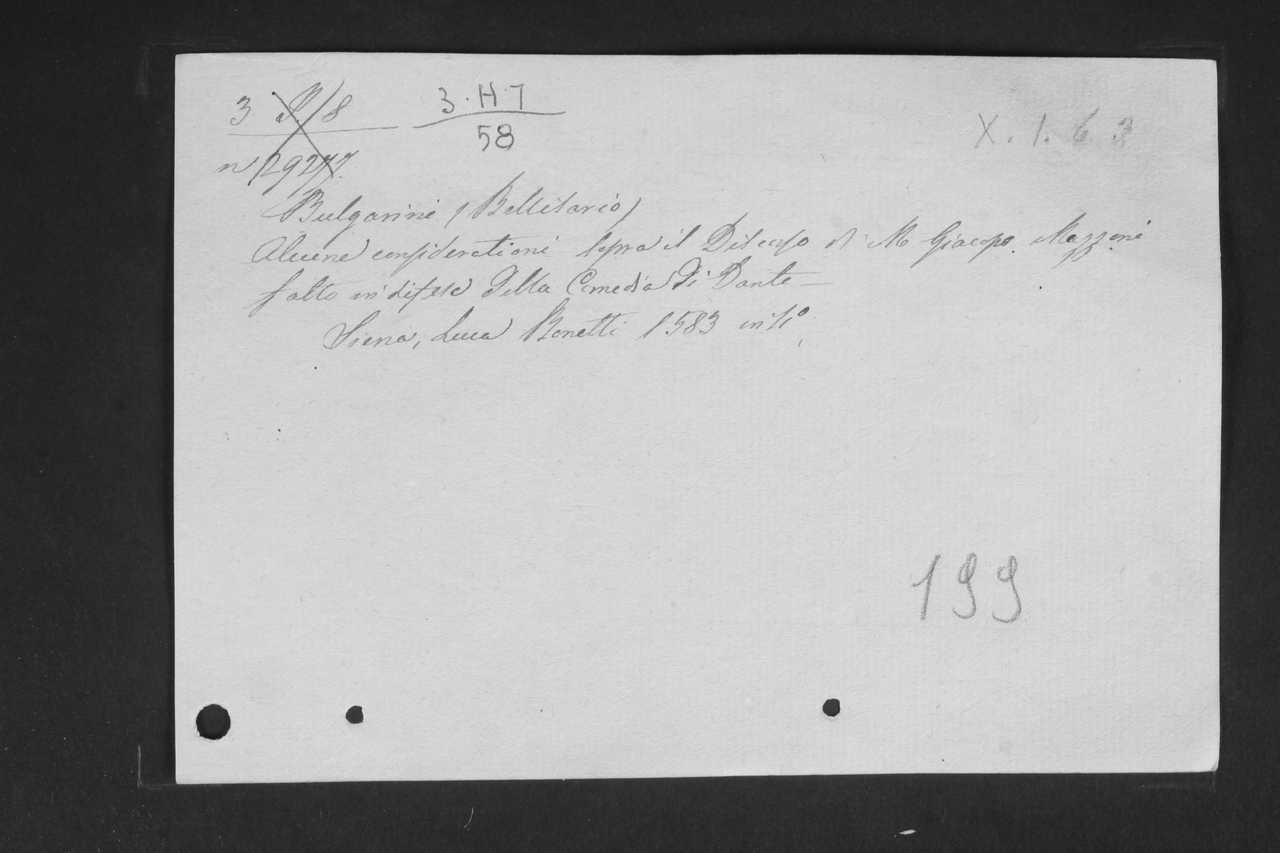 3 8 3.H.7
58 X.1.6.3
n 29277.
Bulgarini (Bellisario)
Alcune considerationi sopra il Discorso di M Giacopo Mazzoni
fatto in difesa della Comedia di Dante —
Siena, Luca Bonetti 1583 in 4º
199